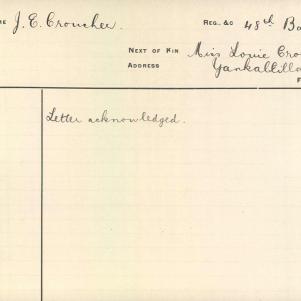 ME J. E. Crouchee. REG. &c 48th Ba
NEXT OF KIN Miss Louie Cro
ADDRESS Yankalillo
F
Letter acknowledged.